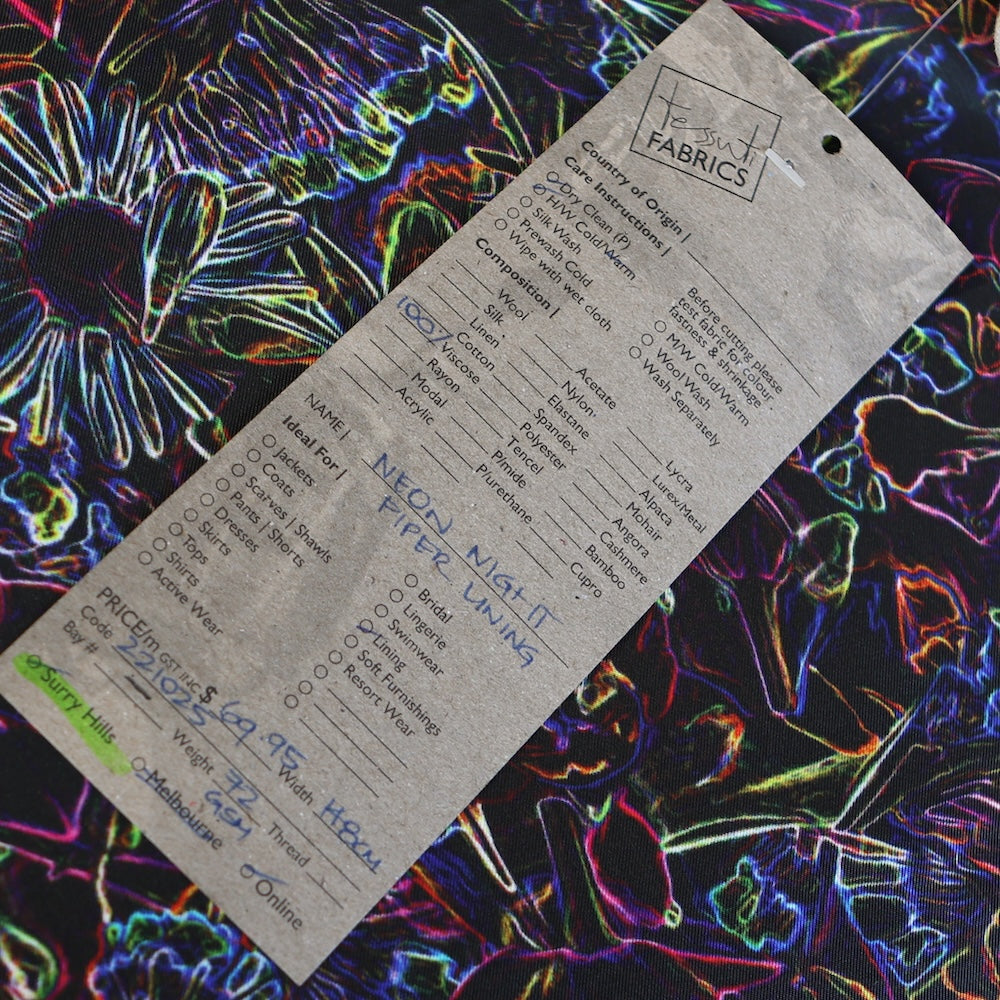 tessuti
FABRICS
Country of Origin |
Care Instructions |
Dry Clean (P)
H/W Cold/Warm
Silk Wash
Prewash Cold
Wipe with wet cloth
Before cutting please
test fabric for colour
fastness & shrinkage
M/W Cold/Warm
Wool Wash
Wash Separately
Composition |
Wool
Silk
Linen
Cotton
100% Viscose
Rayon
Modal
Acrylic
Acetate
Nylon
Elastane
Spandex
Polyester
Tencel
P/mide
P/urethane
Lycra
Lurex/Metal
Alpaca
Mohair
Angora
Cashmere
Bamboo
Cupro
NAME | NEON NIGHT
PIPER LINING
Ideal For |
Jackets
Coats
Scarves | Shawls
Pants | Shorts
Dresses
Skirts
Tops
Shirts
Active Wear
Bridal
Lingerie
Swimwear
Lining
Soft Furnishings
Resort Wear
PRICE/m GST INC $ 69.95
Code 221025 Width 148cm
Bay # Weight 72 GSM Thread
Surry Hills Melbourne Online